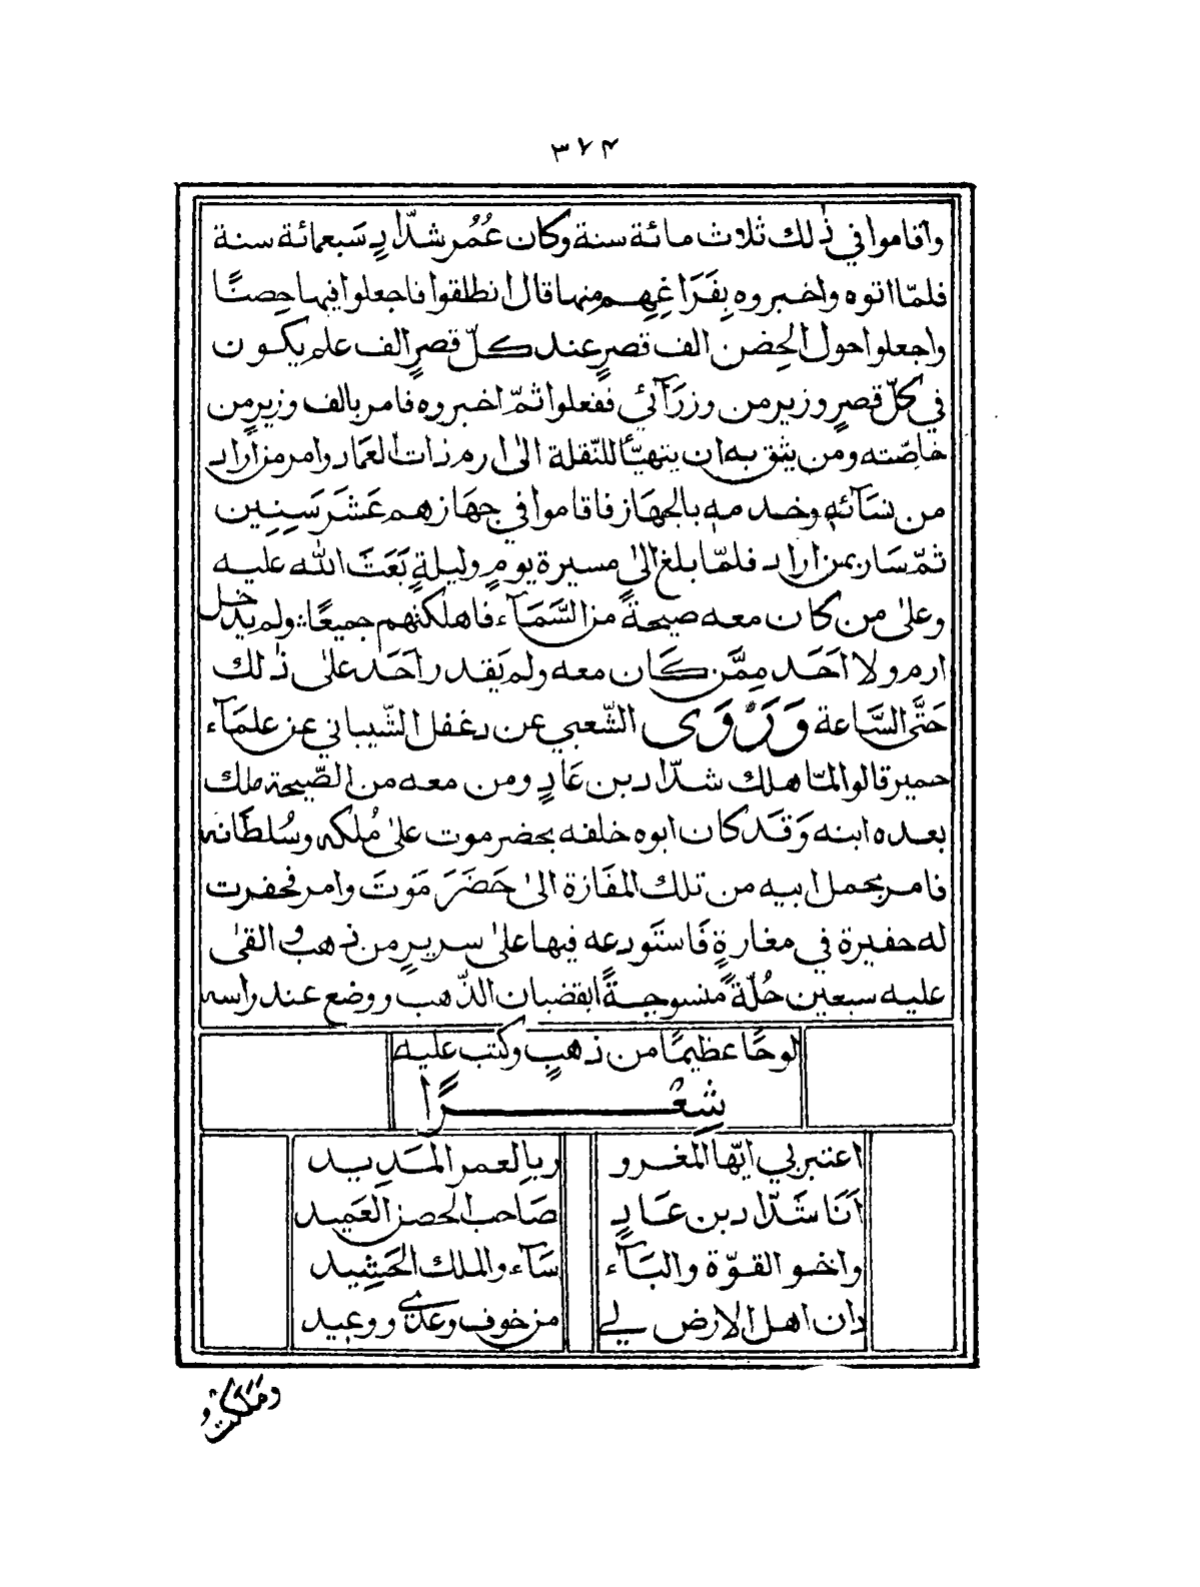 ٣٧٤
واقاموا في ذٰلك ثلاث مائة سنة وكان عُمُر شدّادٍ سَبعمائة سنة
فلمّا اتوه واخبروه بِفَرَاغِهِم منها قال انطلقوا فاجعلوا فيها حِصنًا
واجعلوا حول الحِضن الف قصرٍ عند كلّ قصرٍ الف علم يكون
في كلّ قصرٍ وزير من وزرَآئي ففعلوا ثمّ اخبروه فامر بالف وزيرٍ من
خاصّته ومن يثق به ان يتهيّأ للنّقلة الىٰ ارم ذات العمار وامر من اراد
من نسَآئهٖ وخدمهٖ بالجهَاز فاقاموا في جهَازهم عَشَرَ سَنِنِين
ثمّ سَار بمن اراد فلمّا بلغ الىٰ مسيرة يومٍ وليلةٍ بَعَثَ اللّٰه عليه
وعلىٰ من كان معه صيحةً من السَّمَآء فاهلكتهم جميعًا ولم يدخل
ارم ولا اَحَد مِمَّن كَان معه ولم يَقدر اَحَد علىٰ ذٰلك
حَتَّى السَّاعة وَرَوَى الشّعبي عن دغفل الشّيباني عن علمَآء
حمير قالوا لمّا هلك شدّاد بن عَادٍ ومن معه من الصّيحة ملك
بعده ابنه وَقَد كان ابوه خلفه بحضرموت علىٰ مُلكه وسُلطَانه
فامر بحمل ابيه من تلك المفَازة الىٰ حَضَرَ مَوتَ وامر فحفرت
له حفيرة في مغارةٍ فَاستَودعه فيها علىٰ سريرٍ من ذهب والقىٰ
عليه سبعين حُلّةً منسوجةً بقضبان الذّهب ووضع عند راسه
لوحًا عظيمًا من ذهبٍ وكتب عليه
شِعْـرًا
اعتبر بي ايّها المغرو ر بالعمر المَدِيد
اَنَا شَدّاد بن عَادٍ صَاحب الحصن العَمِيد
واخو القوّة والبَآء سَآء والملك الحَشِيد
دان اهل الارض لي من خوف وعدي ووعيد
وملكت